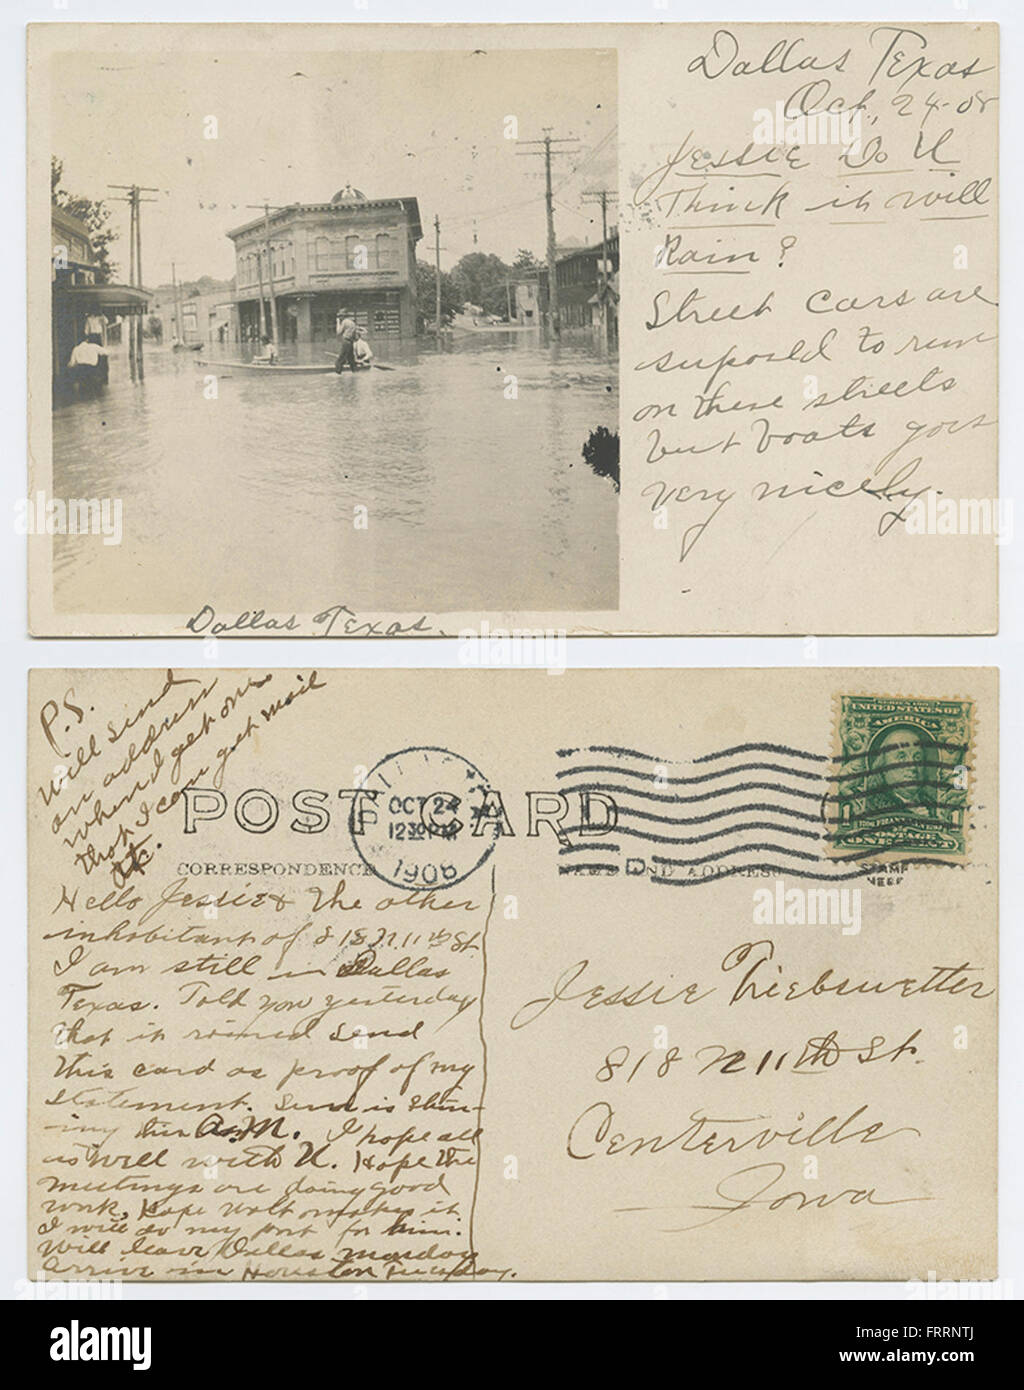 Dallas Texas
Oct, 24-08
Jessie Do U
Think it will
Rain?
Street cars are
suposed to run
on these streets
but boats goes
very nicely.
Dallas Texas.
P.S.
Will send
an address
when I get one
that I can get mail
etc.
POST CARD
CORRESPONDENCE
NAME AND ADDRESS
OCT 24
12 30 PM
1908
SERIES 1902
UNITED STATES OF
AMERICA
POSTAGE
ONE CENT
STAMP
HERE
Hello Jessie & The other
inhabitant of 818 N. 11th St.
I am still in Dallas
Texas. Told you yesterday
that it rained send
this card as proof of my
statement. Sun is shin-
ing this A.M. I hope all
is well with U. Hope the
meetings are doing good
work, Hope Walt makes it
I will do my part for him.
Will leave Dallas Monday
arrive in Houston Tuesday.
Jessie Triebswetter
818 N 11th St.
Centerville
Iowa
alamy
FRRNTJ
www.alamy.com